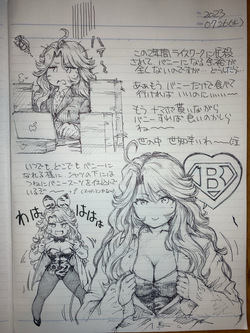 2023
07.26(水)
この2年間ライスワークに忙殺
されて、バニーになる余裕が
全くないのですが…どうしたら
ああもうバニーだけで食べて
行ければいいのに
もうナマポで貰いながら
バニーすれば良いのかしら
ね〜〜
世の中世知辛いわ〜
いつでも、どこでもバニーに
なれる様に、スーツの下には
つねにバニースーツを
B
わは
はははは